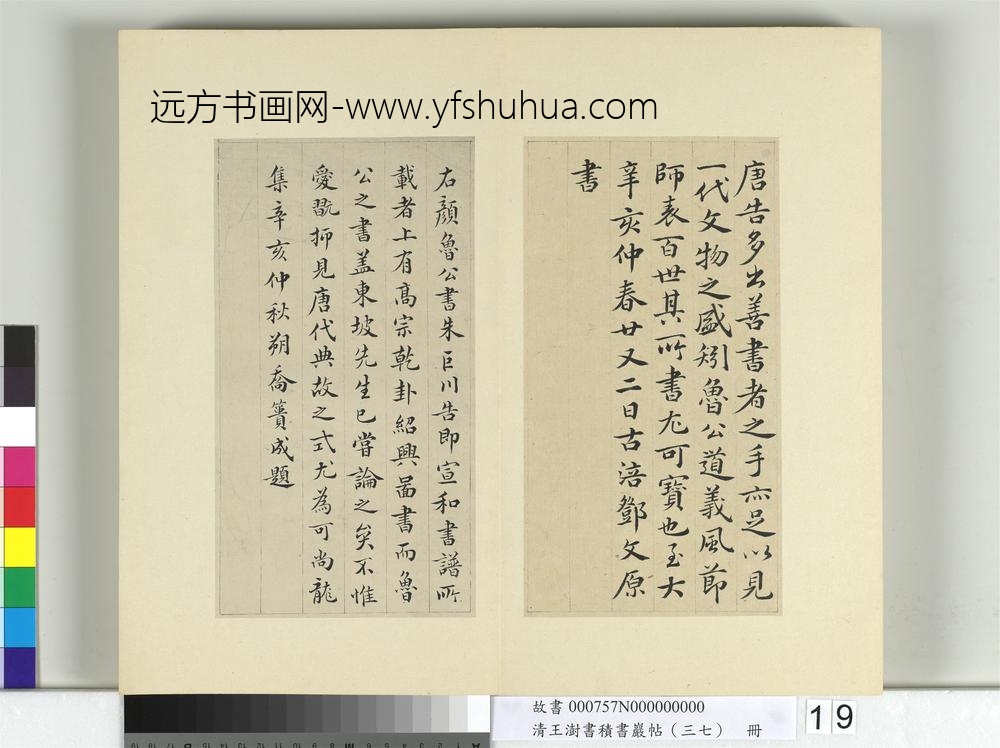 远方书画网-www.yfshuhua.com
唐告多出善書者之手亦足以見
一代文物之盛矧魯公道義風節
師表百世其所書尤可寶也至大
辛亥仲春廿又二日古涪鄧文原
書
右顏魯公書朱巨川告即宣和書譜所
載者上有高宗乾卦紹興啚書而魯
公之書盖東坡先生已嘗論之矣不惟
愛翫抑見唐代典故之式尤為可尚龍
集辛亥仲秋朔喬簣成題
故書 000757N000000000
清王澍書積書巖帖（三七） 冊
19